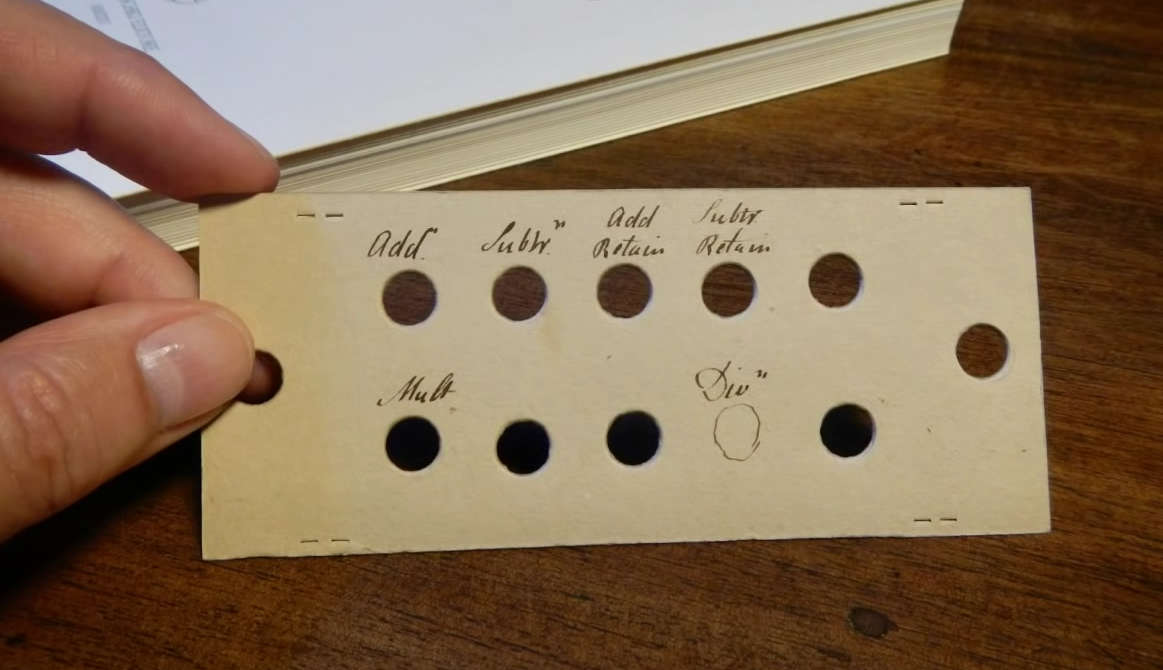 Addⁿ
Subtrⁿ
Add
Retain
Subtr
Retain
Mult
Divⁿ